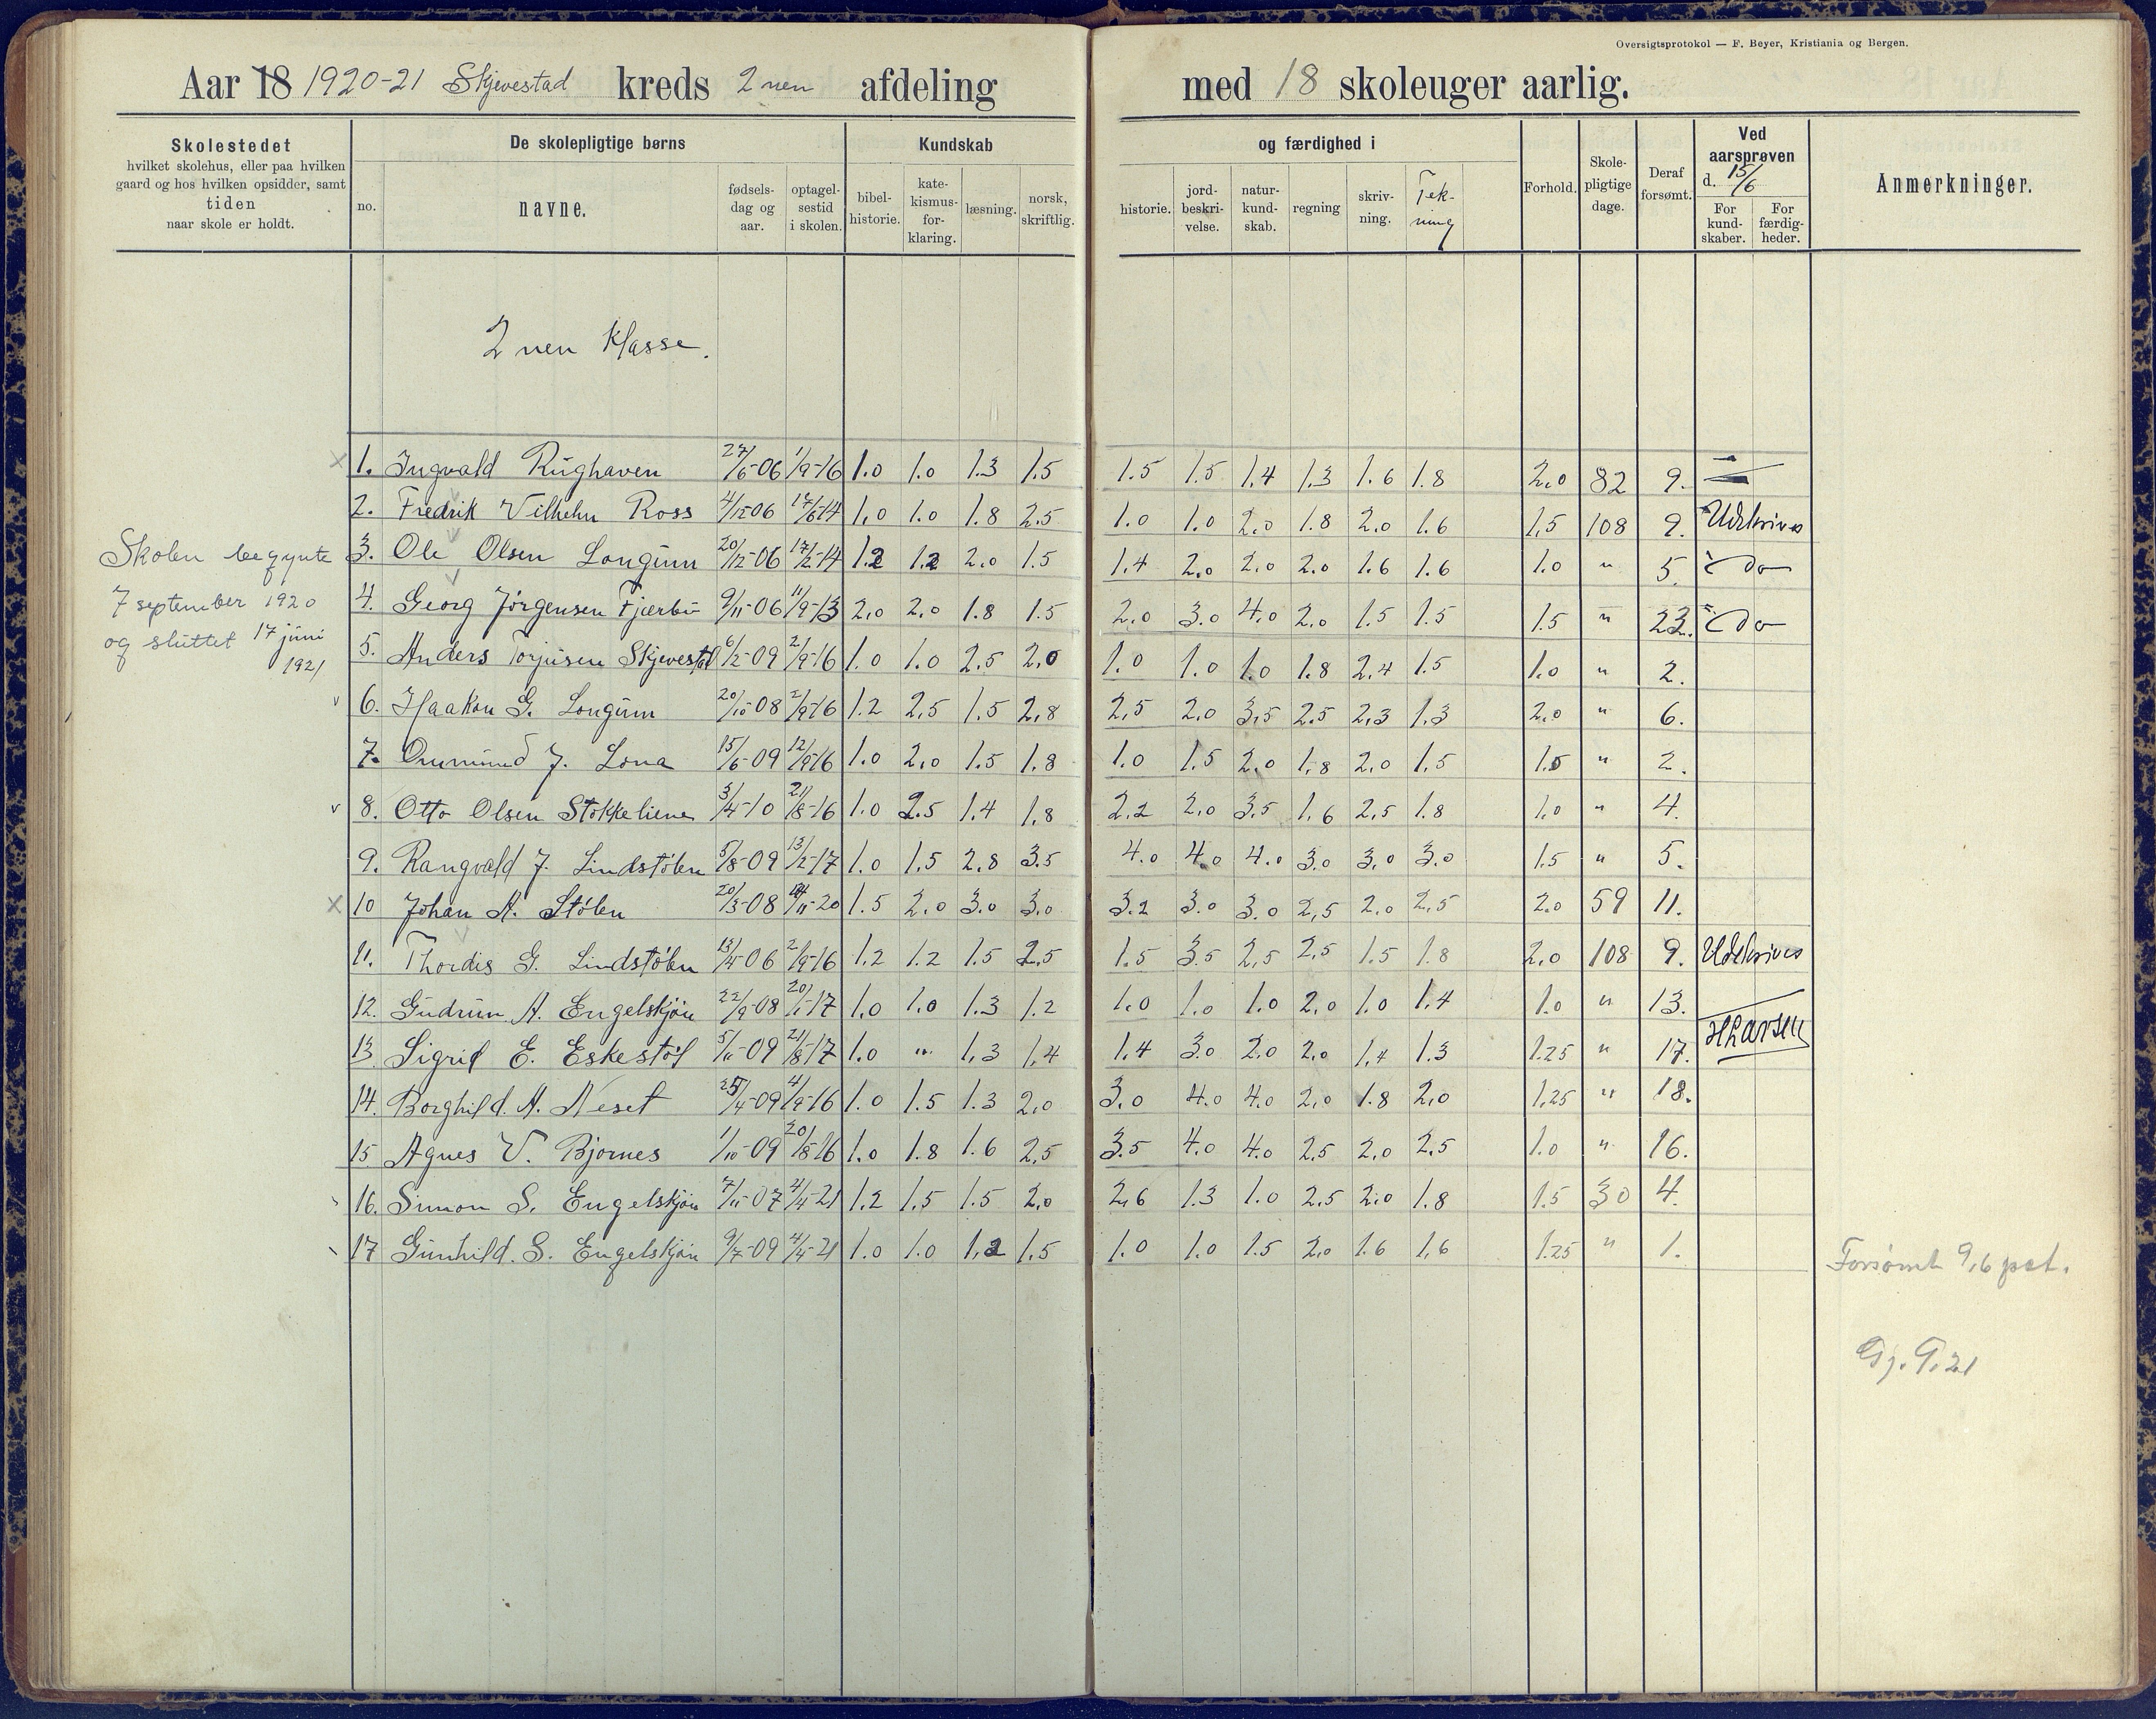 Oversigtsprotokol — F. Beyer, Kristiania og Bergen.
Aar 18 1920-21 Skjevestad kreds 2nen afdeling med 18 skoleuger aarlig.
Skolestedet hvilket skolehus, eller paa hvilken gaard og hos hvilken opsidder, samt tiden naar skole er holdt.
De skolepligtige børns
no. navne. fødsels-dag og aar. optagel-sestid i skolen.
Kundskab og færdighed i
bibel-historie. kate-kismus-for-klaring. læsning. norsk, skriftlig. historie. jord-beskri-velse. natur-kund-skab. regning skriv-ning. Tek-ning
Forhold. Skole-pligtige dage. Deraf forsømt.
Ved aarsprøven d. 15/6 For kund-skaber. For færdig-heder.
Anmerkninger.
2nen Klasse.
Skolen begynte
7 september 1920
og sluttet 17 juni
1921
1. Ingvald Rughaven 27/6-06 1/9-16 1.0 1.0 1.3 1.5 1.5 1.5 1.4 1.3 1.6 1.8 2.0 82 9.
2. Fredrik Vilhelm Ross 4/12-06 17/6-14 1.0 1.0 1.8 2.5 1.0 1.0 2.0 1.8 2.0 1.6 1.5 108 9. Udskrives
3. Ole Olsen Longum 20/12-06 17/2-14 1.2 1.2 2.0 1.5 1.4 2.0 2.0 2.0 1.6 1.6 1.0 " 5. do
4. Georg Jörgensen Fjærbu 9/11-06 11/9-13 2.0 2.0 1.8 1.5 2.0 3.0 4.0 2.0 1.5 1.5 1.5 " 23. do
5. Anders Torjusen Skjevestd 6/2-09 2/9-16 1.0 1.0 2.5 2.0 1.0 1.0 1.0 1.8 2.4 1.5 1.0 " 2.
6. Haakon G. Longum 20/10-08 2/9-16 1.2 2.5 1.5 2.8 2.5 2.0 3.5 2.5 2.3 1.3 2.0 " 6.
7. Ommund J. Lona 15/6-09 12/9-16 1.0 2.0 1.5 1.8 1.0 1.5 2.0 1.8 2.0 1.5 1.5 " 2.
8. Otto Olsen Stokkeliene 3/4-10 21/8-16 1.0 2.5 1.4 1.8 2.2 2.0 3.5 1.6 2.5 1.8 1.0 " 4.
9. Rangvald J. Lindstölen 5/8-09 13/2-17 1.0 1.5 2.8 3.5 4.0 4.0 4.0 3.0 3.0 3.0 1.5 " 5.
10 Johan A. Stölen 20/3-08 /11-20 1.5 2.0 3.0 3.0 3.2 3.0 3.0 2.5 2.0 2.5 2.0 59 11.
11. Thordis G. Lindstölen 13/4-06 2/9-16 1.2 1.2 1.5 2.5 1.5 3.5 2.5 2.5 1.5 1.8 2.0 108 9. Udskrives
12. Gudrun A. Engelskjön 22/9-08 20/1-17 1.0 1.0 1.3 1.2 1.0 1.0 1.0 2.0 1.0 1.4 1.0 " 13.
HLarsen
13 Sigrid E. Eskestöl 5/11-09 21/8-17 1.0 " 1.3 1.4 1.4 3.0 2.0 2.0 1.4 1.3 1.25 " 17.
14. Borghild. A. Neset 25/4-09 4/9-16 1.0 1.5 1.3 2.0 3.0 4.0 4.0 2.0 1.8 2.0 1.25 " 18.
15 Agnes V. Bjornes 1/10-09 20/8-16 1.0 1.8 1.6 2.5 3.5 4.0 4.0 2.5 2.0 2.5 1.0 " 16.
16. Simon S. Engelskjön 7/11-07 4/4-21 1.2 1.5 1.5 2.0 2.6 1.3 1.0 2.5 2.0 1.8 1.5 30 4.
17 Gunhild. S. Engelskjön 9/7-09 4/4-21 1.0 1.0 1.2 1.5 1.0 1.0 1.5 2.0 1.6 1.6 1.25 " 1.
Forsømt 9,6 pct.
Gj. 9.21